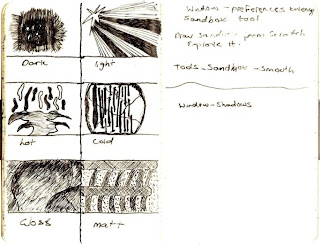 Dark
light
hot
Cold
Gloss
matt
Window - preferences
Sandbox tool
Draw Sandbox from Scratch
Explore it.
Tools - Sandbox - Smooth
Window - Shadows